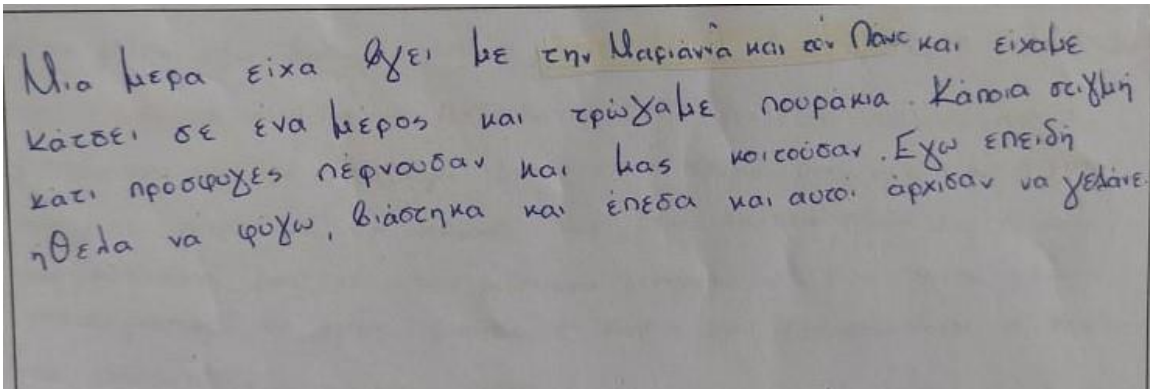 Μια μερα είχα βγει με την Μαριάννα και τον Πάνο και είχαμε
κάτσει σε ένα μέρος και τρώγαμε πουράκια. Κάποια στιγμή
κάτι πρόσφυγες πέρνουσαν και μας κοιτούσαν. Εγω επειδή
ηθελα να φύγω, βιάστηκα και έπεσα και αυτοί άρχισαν να γελάνε.